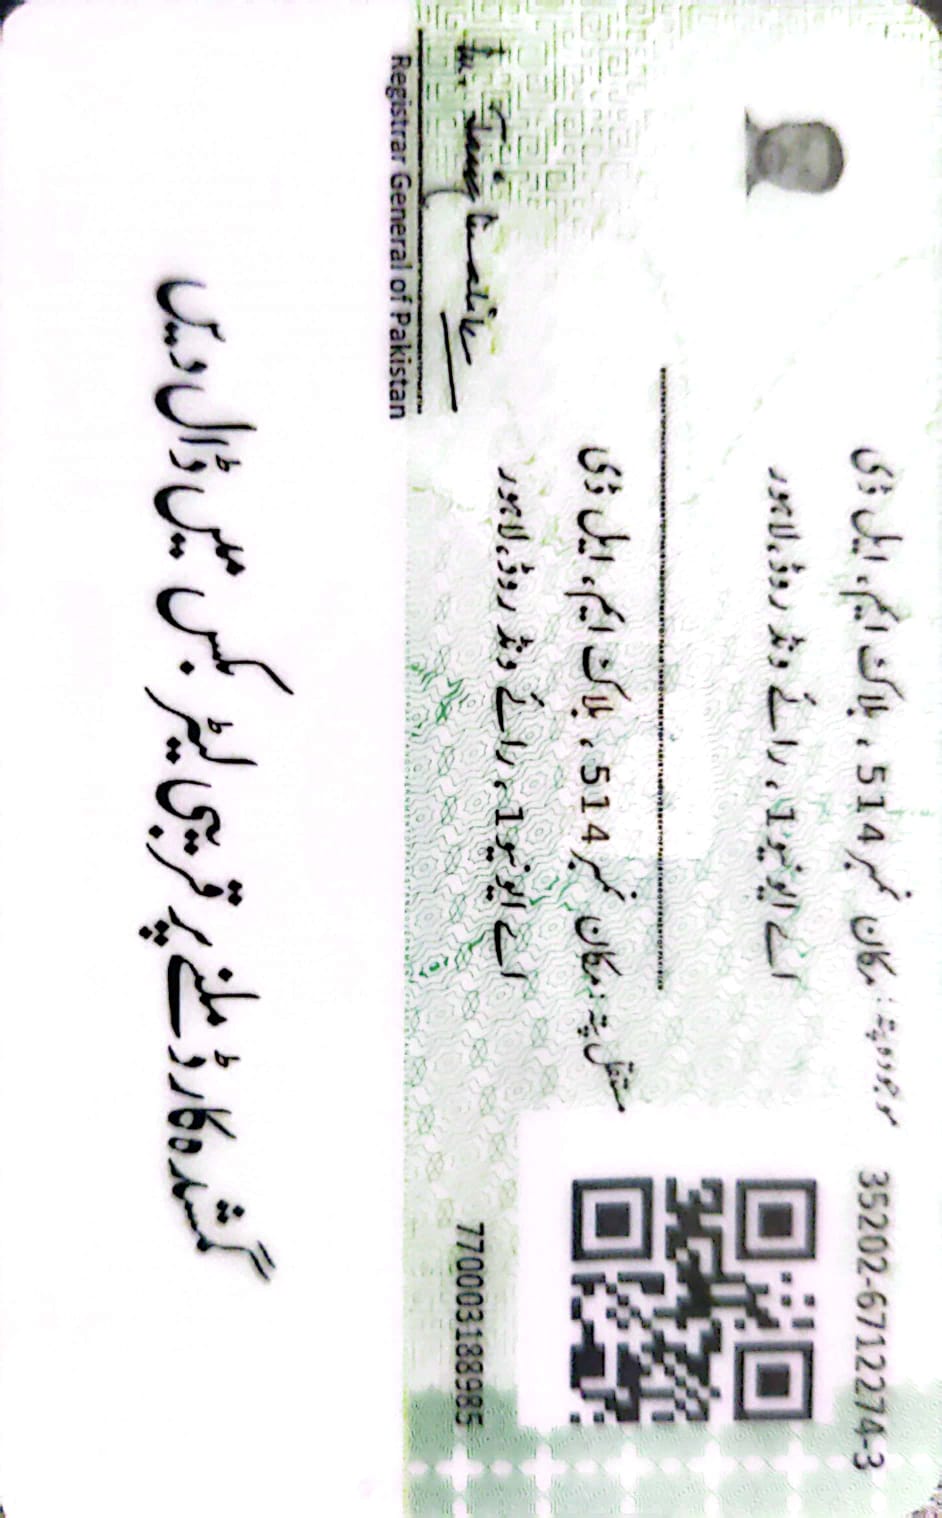 35202-6712274-3
موجودہ پتہ: مکان نمبر 514، بلاک ایم، ایل ڈی
اے ایونیو 1، رائے ونڈ روڈ، لاہور
مستقل پتہ: مکان نمبر 514، بلاک ایم، ایل ڈی
اے ایونیو 1، رائے ونڈ روڈ، لاہور
770003188985
Registrar General of Pakistan
گمشدہ کارڈ ملنے پر قریبی لیٹر بکس میں ڈال دیں